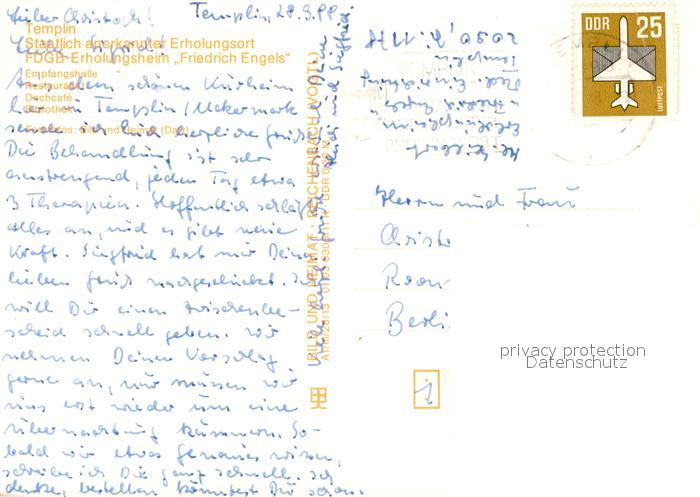 Templin, 28.9.88
Lieber Christoph!
Templin
Staatlich anerkannter Erholungsort
FDGB-Erholungsheim „Friedrich Engels“
Empfangshalle
Restaurant
Dachcafé
Bibliothek
Aus dem schönen Kurheim
hier in Templin/Uckermark
sende ich Euch herzliche Grüße
Die Behandlung ist sehr
anstrengend, jeden Tag etwa
3 Therapien. Hoffentlich schlägt
alles an, und es gibt neue
Kraft. Siegfried hat mir Deine
lieben Gruß nachgeschickt. Ich
will Dir einen Zwischenbe-
scheid schnell geben. Wir
nehmen Deinen Vorschlag
gerne an, nur müssen wir
uns erst wieder um eine
Übernachtung kümmern. So-
bald wir etwas genaues wissen,
schreibe ich Dir ganz schnell. Ich
denke, bestellen könntest Du schon.
und Siegfried
BILD UND HEIMAT REICHENBACH (VOGTL)
DDR
25
LUFTPOST
2090
Templin
Herrn und Frau
Christo
Roon
Berli
privacy protection
Datenschutz